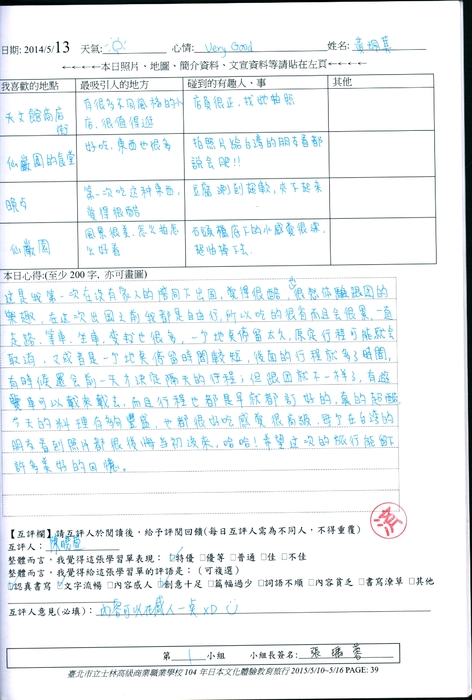 日期: 2014/5/13 天氣: 心情: Very Good 姓名:
←←←←←本日照片、地圖、簡介資料、文宣資料等請貼在左頁←←←←←
我喜歡的地點 最吸引人的地方 碰到的有趣人、事 其他
天文館商店街 有很多不同風格的小店,很值得逛 店員很正,找她拍照
仙巖園的食堂 好吃,東西也很多 拍照片給台灣的朋友看都說會肥!!
晚餐 第一次吃這種東西,覺得很酷 豆腐涮到超軟,夾不起來
仙巖園 風景很美,怎么拍怎么好看
本日心得:(至少 200 字,亦可畫圖)
這是我第一次在沒有家人的陪同下出國,覺得很酷,很想体驗跟團的
樂趣,在這次出國之前我都是自由行,所以吃的很省而且會很累,一直
走路、等車、坐車,變數也很多,一个地點停留太久,原定行程可能就會
取消,又或者是一个地點停留時間較短,後面的行程就多了時間,
有時候還會前一天才決定隔天的行程;但跟团就不一樣了,有遊
覽車可以載來載去,而且行程也都是早就都訂好的,真的超酷
今天的料理有夠豐盛,也都很好吃感覺很高級,每个在台灣的
朋友看到照片都很後悔当初沒來,哈哈!希望這次的旅行能留下
許多美好的回憶。
【互評欄】請互評人於閱讀後,給予評閱回饋(每日互評人需為不同人,不得重覆)
互評人:
整體而言,我覺得這張學習單表現:☑特優 □優等 □普通 □佳 □不佳
整體而言,我覺得給這張學習單的評語是:(可複選)
☑認真書寫 ☑文字流暢 □內容感人 ☑創意十足 □篇幅過少 □詞語不順 □內容貧乏 □書寫潦草 □其他
互評人意見(必填): 內容可以在感人一點 XD
第 1 小組 小組長簽名:
臺北市立士林高級商業職業學校 104 年日本文化體驗教育旅行 2015/5/10~5/16 PAGE: 39